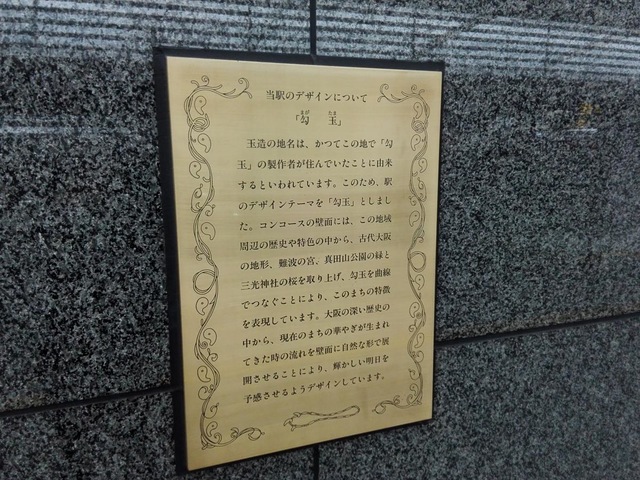 当駅のデザインについて
「勾玉」
まが たま
玉造の地名は、かつてこの地で「勾
玉」の製作者が住んでいたことに由来
するといわれています。このため、駅
のデザインテーマを「勾玉」としまし
た。コンコースの壁面には、この地域
周辺の歴史や特色の中から、古代大阪
の地形、難波の宮、真田山公園の緑と
三光神社の桜を取り上げ、勾玉を曲線
でつなぐことにより、このまちの特徴
を表現しています。大阪の深い歴史の
中から、現在のまちの華やぎが生まれ
てきた時の流れを壁面に自然な形で展
開させることにより、輝かしい明日を
予感させるようデザインしています。